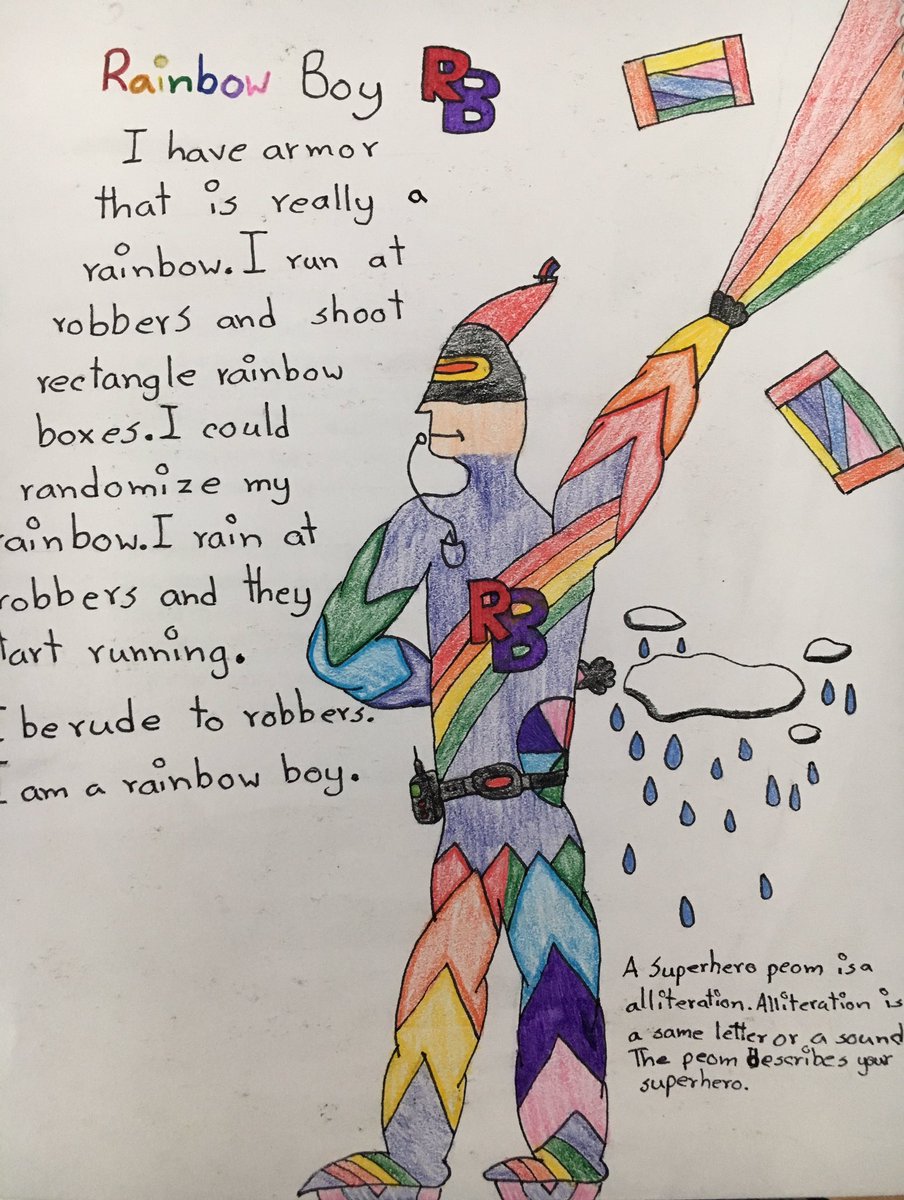 Rainbow Boy RBB
I have armor
that is really a
rainbow. I run at
robbers and shoot
rectangle rainbow
boxes. I could
randomize my
rainbow. I rain at
robbers and they
tart running.
I be rude to robbers.
I am a rainbow boy.
RBB
A Superhero peom is a
alliteration. Alliteration is
a same letter or a sound
The peom describes your
superhero.